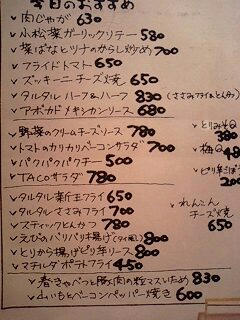 今日のおすすめ
✓肉じゃが 630
✓小松菜ガーリックソテー 580
✓菜ばなとツナのからし炒め 700
✓フライドトマト 650
✓ズッキーニチーズ焼 650
✓タルタル ハーフ&ハーフ 830 (ささみフライ&とんかつ)
✓アボカドメキシカンソース 680
✓野菜のクリームチーズソース 780
✓トマトのカリカリベーコンサラダ 700
✓パクパクパクチー 500
✓TACOサラダ 780
✓とりみそ
✓梅Q 480
✓ピリ辛
✓れんこんチーズ焼 650
✓タルタル 650
✓タルタルささみフライ 700
✓スティックとんかつ 780
✓えびのパリパリ揚げ 800
✓とりから揚げピリ辛ソース 800
✓マチルダポテトフライ 450
✓春きゃべっと豚肉の粒マスいため 830
✓山いもとベーコンペッパー焼き 600